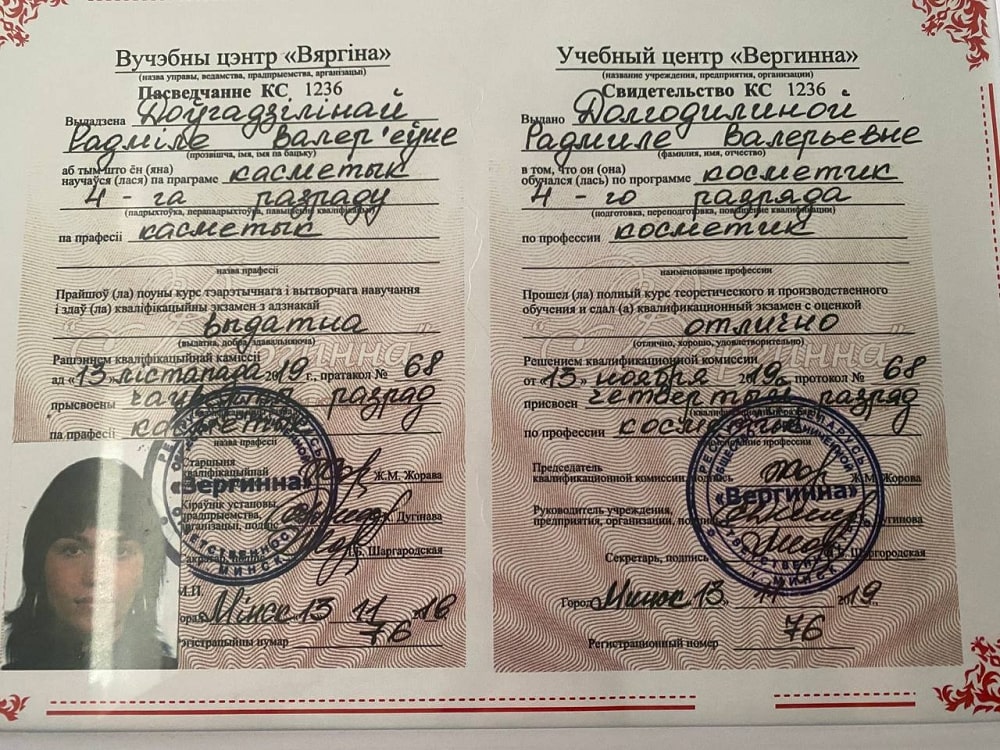 Вучэбны цэнтр «Вяргіна»
(назва управы, ведамства, прадпрыемства, арганізацыі)
Пасведчанне КС 1236
Выдадзена Доўгадзілінай
Радміле Валер'еўне
(прозвішча, імя, імя па бацьку)
аб тым што ён (яна)
навучаўся (лася) па праграме касметык
4 - га разраду
(падрыхтоўка, перападрыхтоўка, павышэнне кваліфікацыі)
па прафесіі касметык
назва прафесіі
Прайшоў (ла) поуны курс тэарэтычнага і вытворчага навучання
і здаў (ла) кваліфікацыйны экзамен з адзнакай
выдатна
(выдатна, добра, здавальняюча)
Рашэннем кваліфікацыйнай камісіі
ад «13» лістапада 2019 г., пратакол № 68
прысвоены разрад
па прафесіі касметык
назва прафесіі
Старшыня
кваліфікацыйнай
Ж.М. Жорава
Кіраўнік установы,
прадпрыемства,
арганізацыі, подпіс Дугінава
Шаргародская
М.П.
Мінск 13 11
76
рэгістрацыйны нумар
«Вергинна»
МИНСК
Учебный центр «Вергинна»
(название учреждения, предприятия, организации)
Свидетельство КС 1236
Выдано Долгодилиной
Радмиле Валерьевне
(фамилия, имя, отчество)
в том, что он (она)
обучался (лась) по программе косметик
4 - го разряда
(подготовка, переподготовка, повышение квалификации)
по профессии косметик
наименование профессии
Прошел (ла) полный курс теоретического и производственного
обучения и сдал (а) квалификационный экзамен с оценкой
отлично
(отлично, хорошо, удовлетворительно)
Решением квалификационной комиссии
от «13» ноября 2019г. протокол № 68
присвоен четвертый разряд
по профессии косметик
Председатель
квалификационной комиссии, подпись Ж.М. Жорова
Руководитель учреждения,
предприятия, организации, Дугинова
Секретарь, подпись Шаргородская
Город Минск 13 11 2019.
76
Регистрационный номер
«Вергинна»
МИНСК